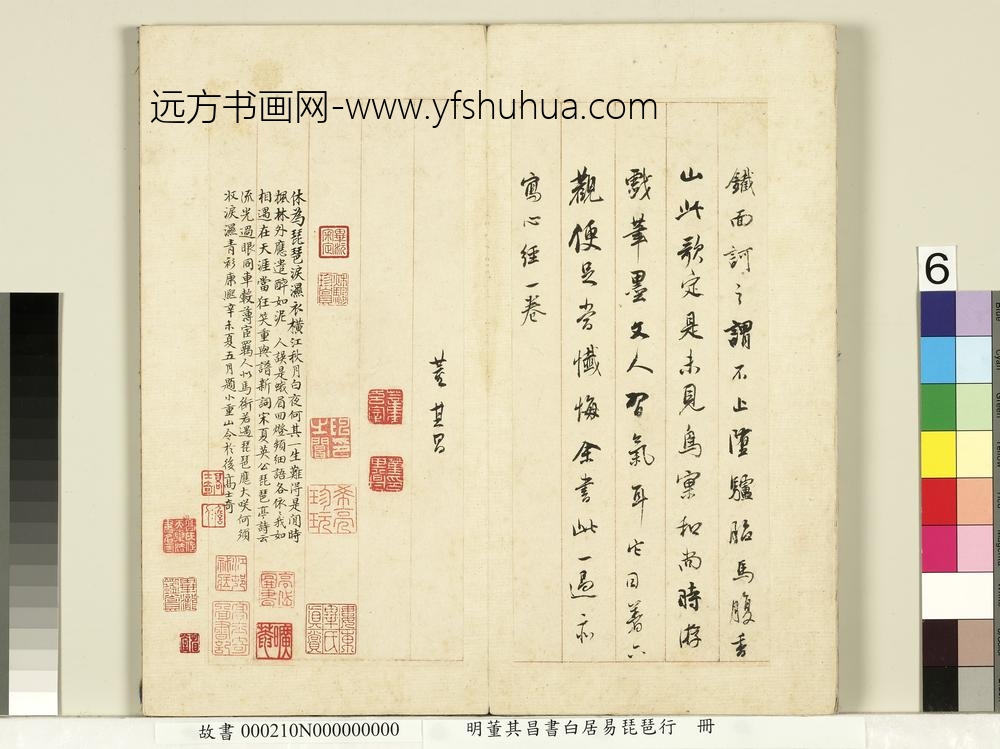 远方书画网-www.yfshuhua.com
鐵面訶之謂不止墮驢胎馬腹香
山此歌定是未見鳥窠和尚時游
戲筆墨文人習氣耳它日著六
觀便足當懺悔余書此一過亦
寫心經一卷
董其昌
休為琵琶淚濕衣橫江秋月白夜何其一生難得是閒時
楓林外應遣醉如泥 人誤是蛾眉回燈頻細語各依依我如
相遇在天涯當狂笑重與譜新詞宋夏英公琵琶亭詩云
流光過眼同車轂薄宦羈人似馬銜若遇琵琶應大咲何須
淚濕青衫康熙辛未夏五月題小重山令於後高士奇
6
故書 000210N000000000
明董其昌書白居易琵琶行 冊